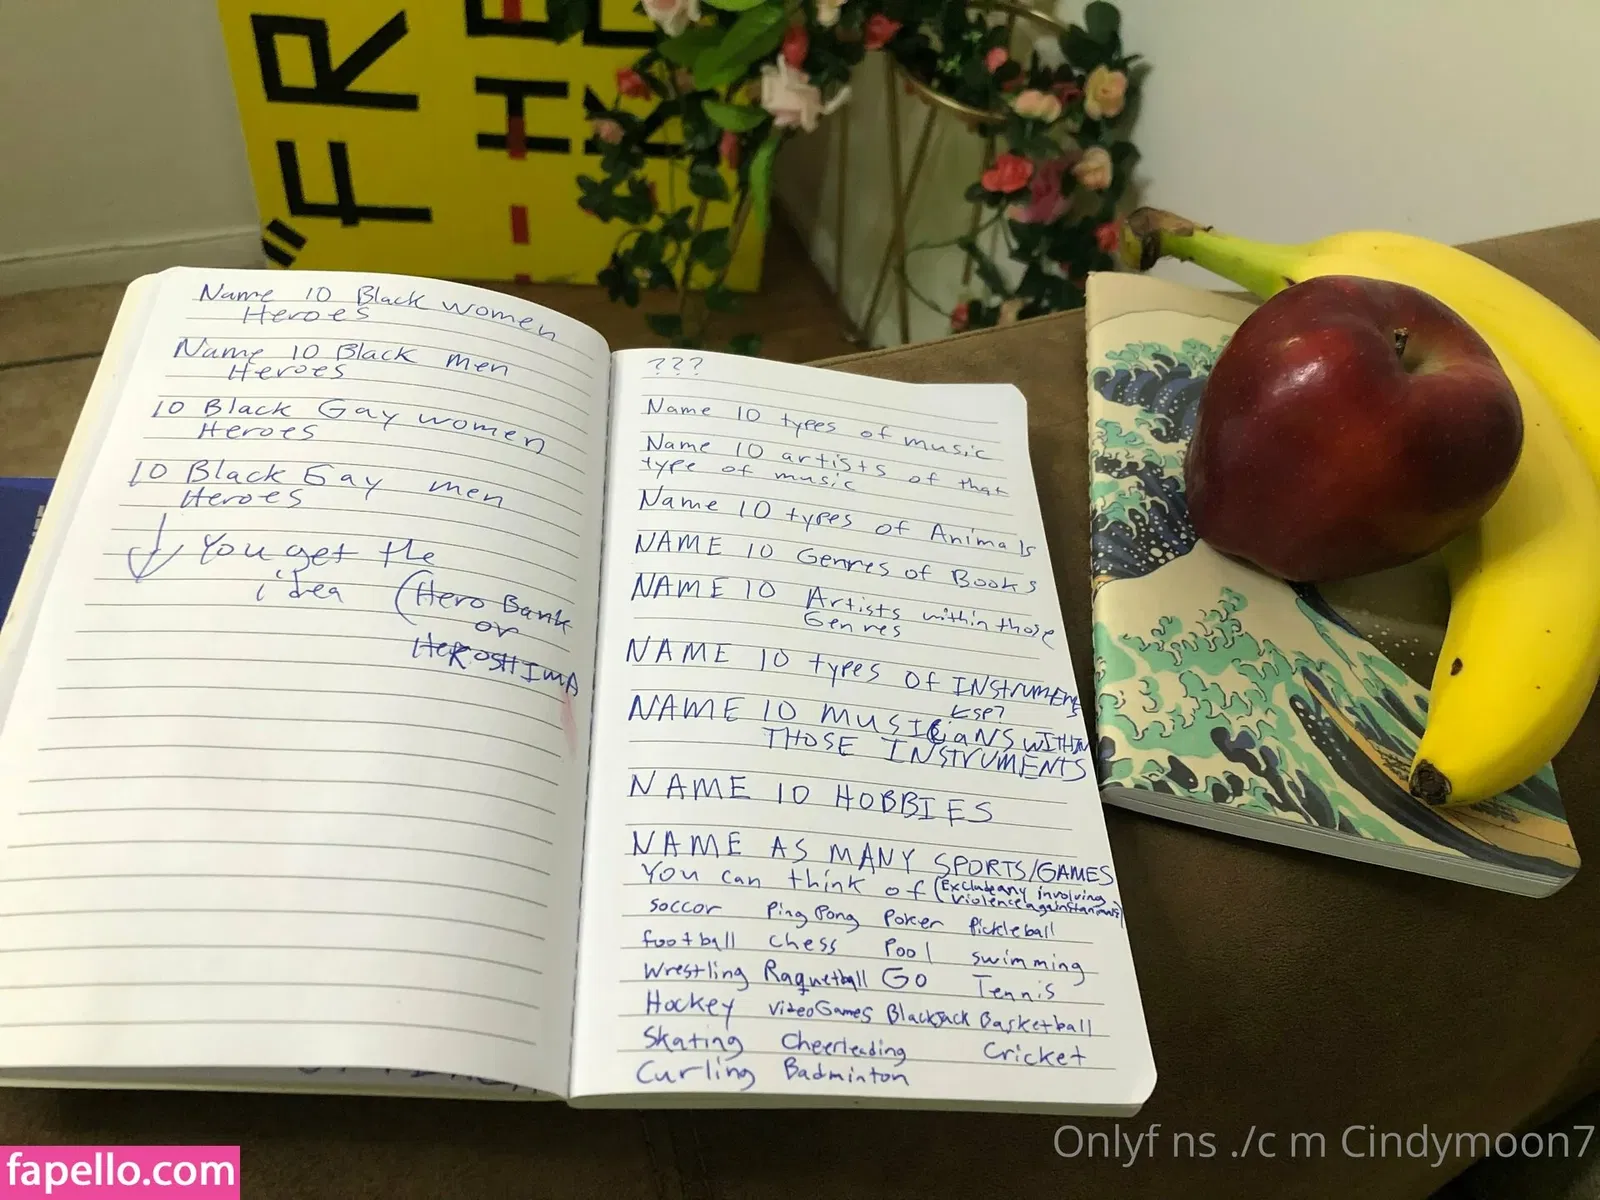 "FR
Name 10 Black women
Heroes
Name 10 Black men
Heroes
10 Black Gay women
Heroes
10 Black Gay men
Heroes
You get the
idea (Hero Bank
or
HEROSHIMA
???
Name 10 types of music
Name 10 artists of that
type of music
Name 10 types of Animals
NAME 10 Genres of Books
NAME 10 Artists within those
Genres
NAME 10 types of INSTRUMENTS
NAME 10 MUSICIANS WITHIN
THOSE INSTRUMENTS
NAME 10 HOBBIES
NAME AS MANY SPORTS/GAMES
You can think of (Exclude any involving
violence against animals)
soccor Ping Pong Poker Pickleball
football chess Pool swimming
Wrestling Raquetball GO Tennis
Hockey VideoGames Blackjack Basketball
Skating Cheerleading Cricket
Curling Badminton
Onlyf ns ./c m Cindymoon7
fapello.com